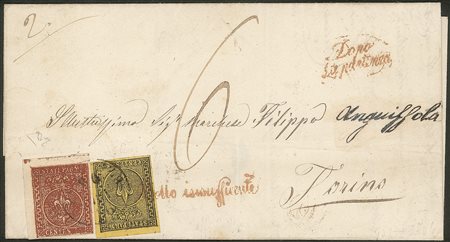 2
6
Dopo
la partenza
Illustrissimo Sigʳ Marchese Filippo Anguissola
Bollo insufficiente
Torino